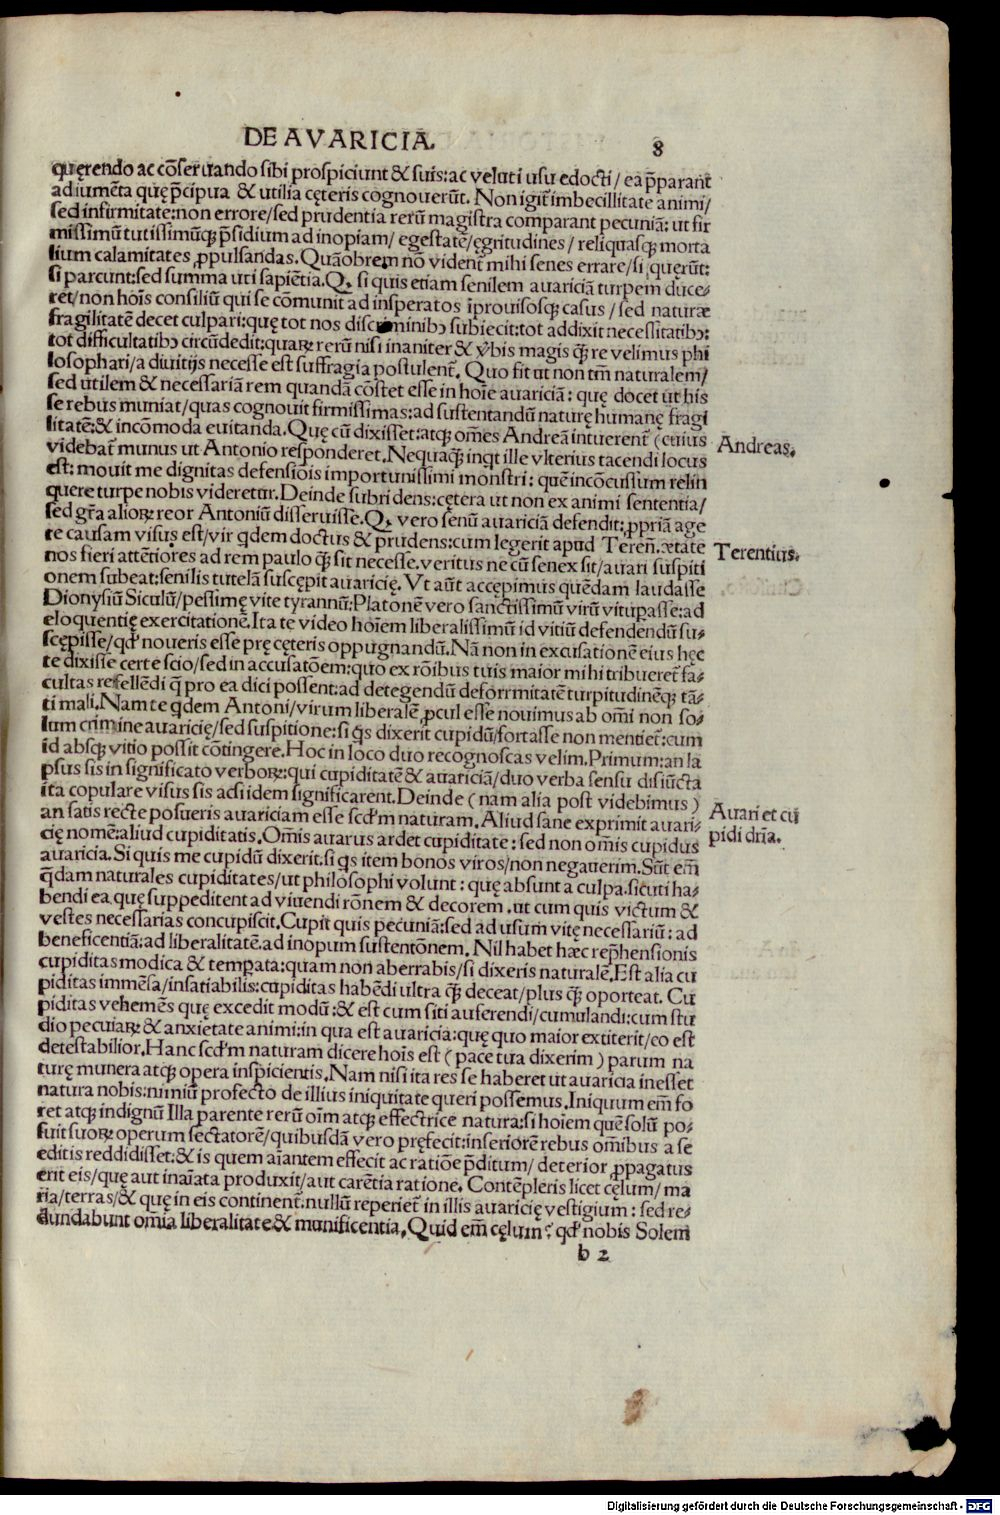 DE AVARICIA.
8
quęrendo ac cõseruando sibi prospiciunt & suis: ac veluti usu edocti / ea p̄parant
adiumẽta quę p̄cipua & utilia cęteris cognouerũt. Non igit̃ imbecillitate animi /
sed infirmitate: non errore / sed prudentia rerũ magistra comparant pecuniã: ut fir
missimũ tutissimũqꝫ p̄sidium ad inopiam / egestatẽ / ęgritudines / reliquasqꝫ morta
lium calamitates ꝓpulsandas. Quãobrem nõ vident̃ mihi senes errare / si quęrũt:
si parcunt: sed summa uti sapiẽtia. Q. si quis etiam senilem auariciã turpem duce-
ret / non hoĩs consiliũ qui se cõmunit ad insperatos ĩprouisosqꝫ casus / sed naturæ
fragilitatẽ decet culpari: quę tot nos discriminibꝰ subiecit: tot addixit necessitatibꝰ:
tot difficultatibꝰ circũdedit: quaꝝ rerũ nisi inaniter & v̉bis magis q̃ꝫ re velimus phi
losophari / a diuitijs necesse est suffragia postulent̃. Quo fit ut non tm̃ naturalem /
sed utilem & necessariã rem quandã cõstet esse in hoĩe auariciã: quę docet ut his
se rebus muniat / quas cognouit firmissimas: ad sustentandũ naturę humanę fragi
litatẽ: & incõmoda euitanda. Quę cũ dixisset: atqꝫ om̃es Andreã intuerent̃ (cuius
videbat̃ munus ut Antonio responderet. Nequaq̃ꝫ inqt ille vlterius tacendi locus
est: mouit me dignitas defensiõis importunissimi monstri: quẽ incõcussum relin
quere turpe nobis videretur. Deinde subridens: cętera ut non ex animi sententia /
sed gr̃a alioꝝ reor Antoniũ disseruisse. Q. vero senũ auariciã defendit: ꝓpriã age
re causam visus est / vir qdem doctus & prudens: cum legerit apud Terẽñ. ætate
nos fieri attẽtiores ad rem paulo q̃ꝫ sit necesse. veritus ne cũ senex sit / auari suspiti
onem subeat: senilis tutelã suscępit auaricię. Vt aũt accepimus quẽdam laudasse
Dionysiũ Siculũ / pessimę vite tyrannũ: Platonẽ vero sanctissimũ virũ vituꝑasse: ad
eloquentię exercitationẽ. Ita te video hoĩem liberalissimũ id vitiũ defendendũ su-
scępisse / qđ noueris esse pre cęteris oppugnandũ. Nã non in excusationẽ eius hęc
te dixisse certe scio / sed in accusatõem: quo ex rõibus tuis maior mihi tribueret̃ fa-
cultas refellẽdi q̃ pro ea dici possent: ad detegendũ deforrmitatẽ turpitudinẽqꝫ tã-
ti mali. Nam te qdem Antoni / virum liberalẽ ꝓcul esse nouimus ab om̃i non so-
lum crimine auaricię / sed suspitione: si qs dixerit cupidũ / fortasse non mentiet̃: cum
id absqꝫ vitio possit cõtingere. Hoc in loco duo recognoscas velim. Primum: an la
psus sis in significato verboꝝ: qui cupiditatẽ & auariciã / duo verba sensu disiũcta
ita copulare visus sis acsi idem significarent. Deinde (nam alia post videbimus)
an satis recte posueris auariciam esse scd̃m naturam. Aliud sane exprimit auari-
cię nomẽ: aliud cupiditatis. Om̃is auarus ardet cupiditate: sed non om̃is cupidus
auaricia. Si quis me cupidũ dixerit. si qs item bonos viros / non negauerim. Sũt em̃
q̃dam naturales cupiditates / ut philosophi volunt: quę absunt a culpa. sicuti ha-
bendi ea quę suppeditent ad viuendi rõnem & decorem. ut cum quis victum &
vestes necessarias concupiscit. Cupit quis pecuniã: sed ad usum vitę necessariũ: ad
beneficentiã: ad liberalitatẽ. ad inopum sustentõnem. Nil habet hæc rep̃hensionis
cupiditas modica & temꝑata: quam non aberrabis / si dixeris naturalẽ. Est alia cu
piditas immẽsa / insatiabilis: cupiditas habẽdi ultra q̃ꝫ deceat / plus q̃ꝫ oporteat. Cu
piditas vehemẽs quę excedit modũ: & est cum siti auferendi / cumulandi: cum stu
dio pecuiaꝝ & anxietate animi: in qua est auaricia: quę quo maior extiterit / eo est
detestabilior. Hanc scd̃m naturam dicere hoĩs est (pace tua dixerim) parum na
turę munera atqꝫ opera insꝑicientis. Nam nisi ita res se haberet ut auaricia inesset
natura nobis: nimiũ profecto de illius iniquitate queri possemus. Iniquum em̃ fo
ret atqꝫ indignũ Illa parente rerũ oĩm atqꝫ effectrice natura: si hoĩem quẽ solũ po-
suit suoꝝ operum sectatorẽ / quibusdã vero pręfecit: inferiorẽ rebus om̃ibus a se
editis reddidisset: & is quem aĩantem effecit ac ratiõe p̃ditum / deterior ꝓpagatus
erit eis / quę aut inaĩata produxit / aut carẽtia ratione. Contẽpleris licet cęlum / ma
ria / terras / & quę in eis continent̃. nullũ reperiet̃ in illis auaricię vestigium: sed re-
dundabunt om̃ia liberalitate & munificentia. Quid em̃ cęlum? qđ nobis Solem
b 2
Andreas.
Terentius.
Auari et cu
pidi dr̃ia.
Digitalisierung gefördert durch die Deutsche Forschungsgemeinschaft - DFG